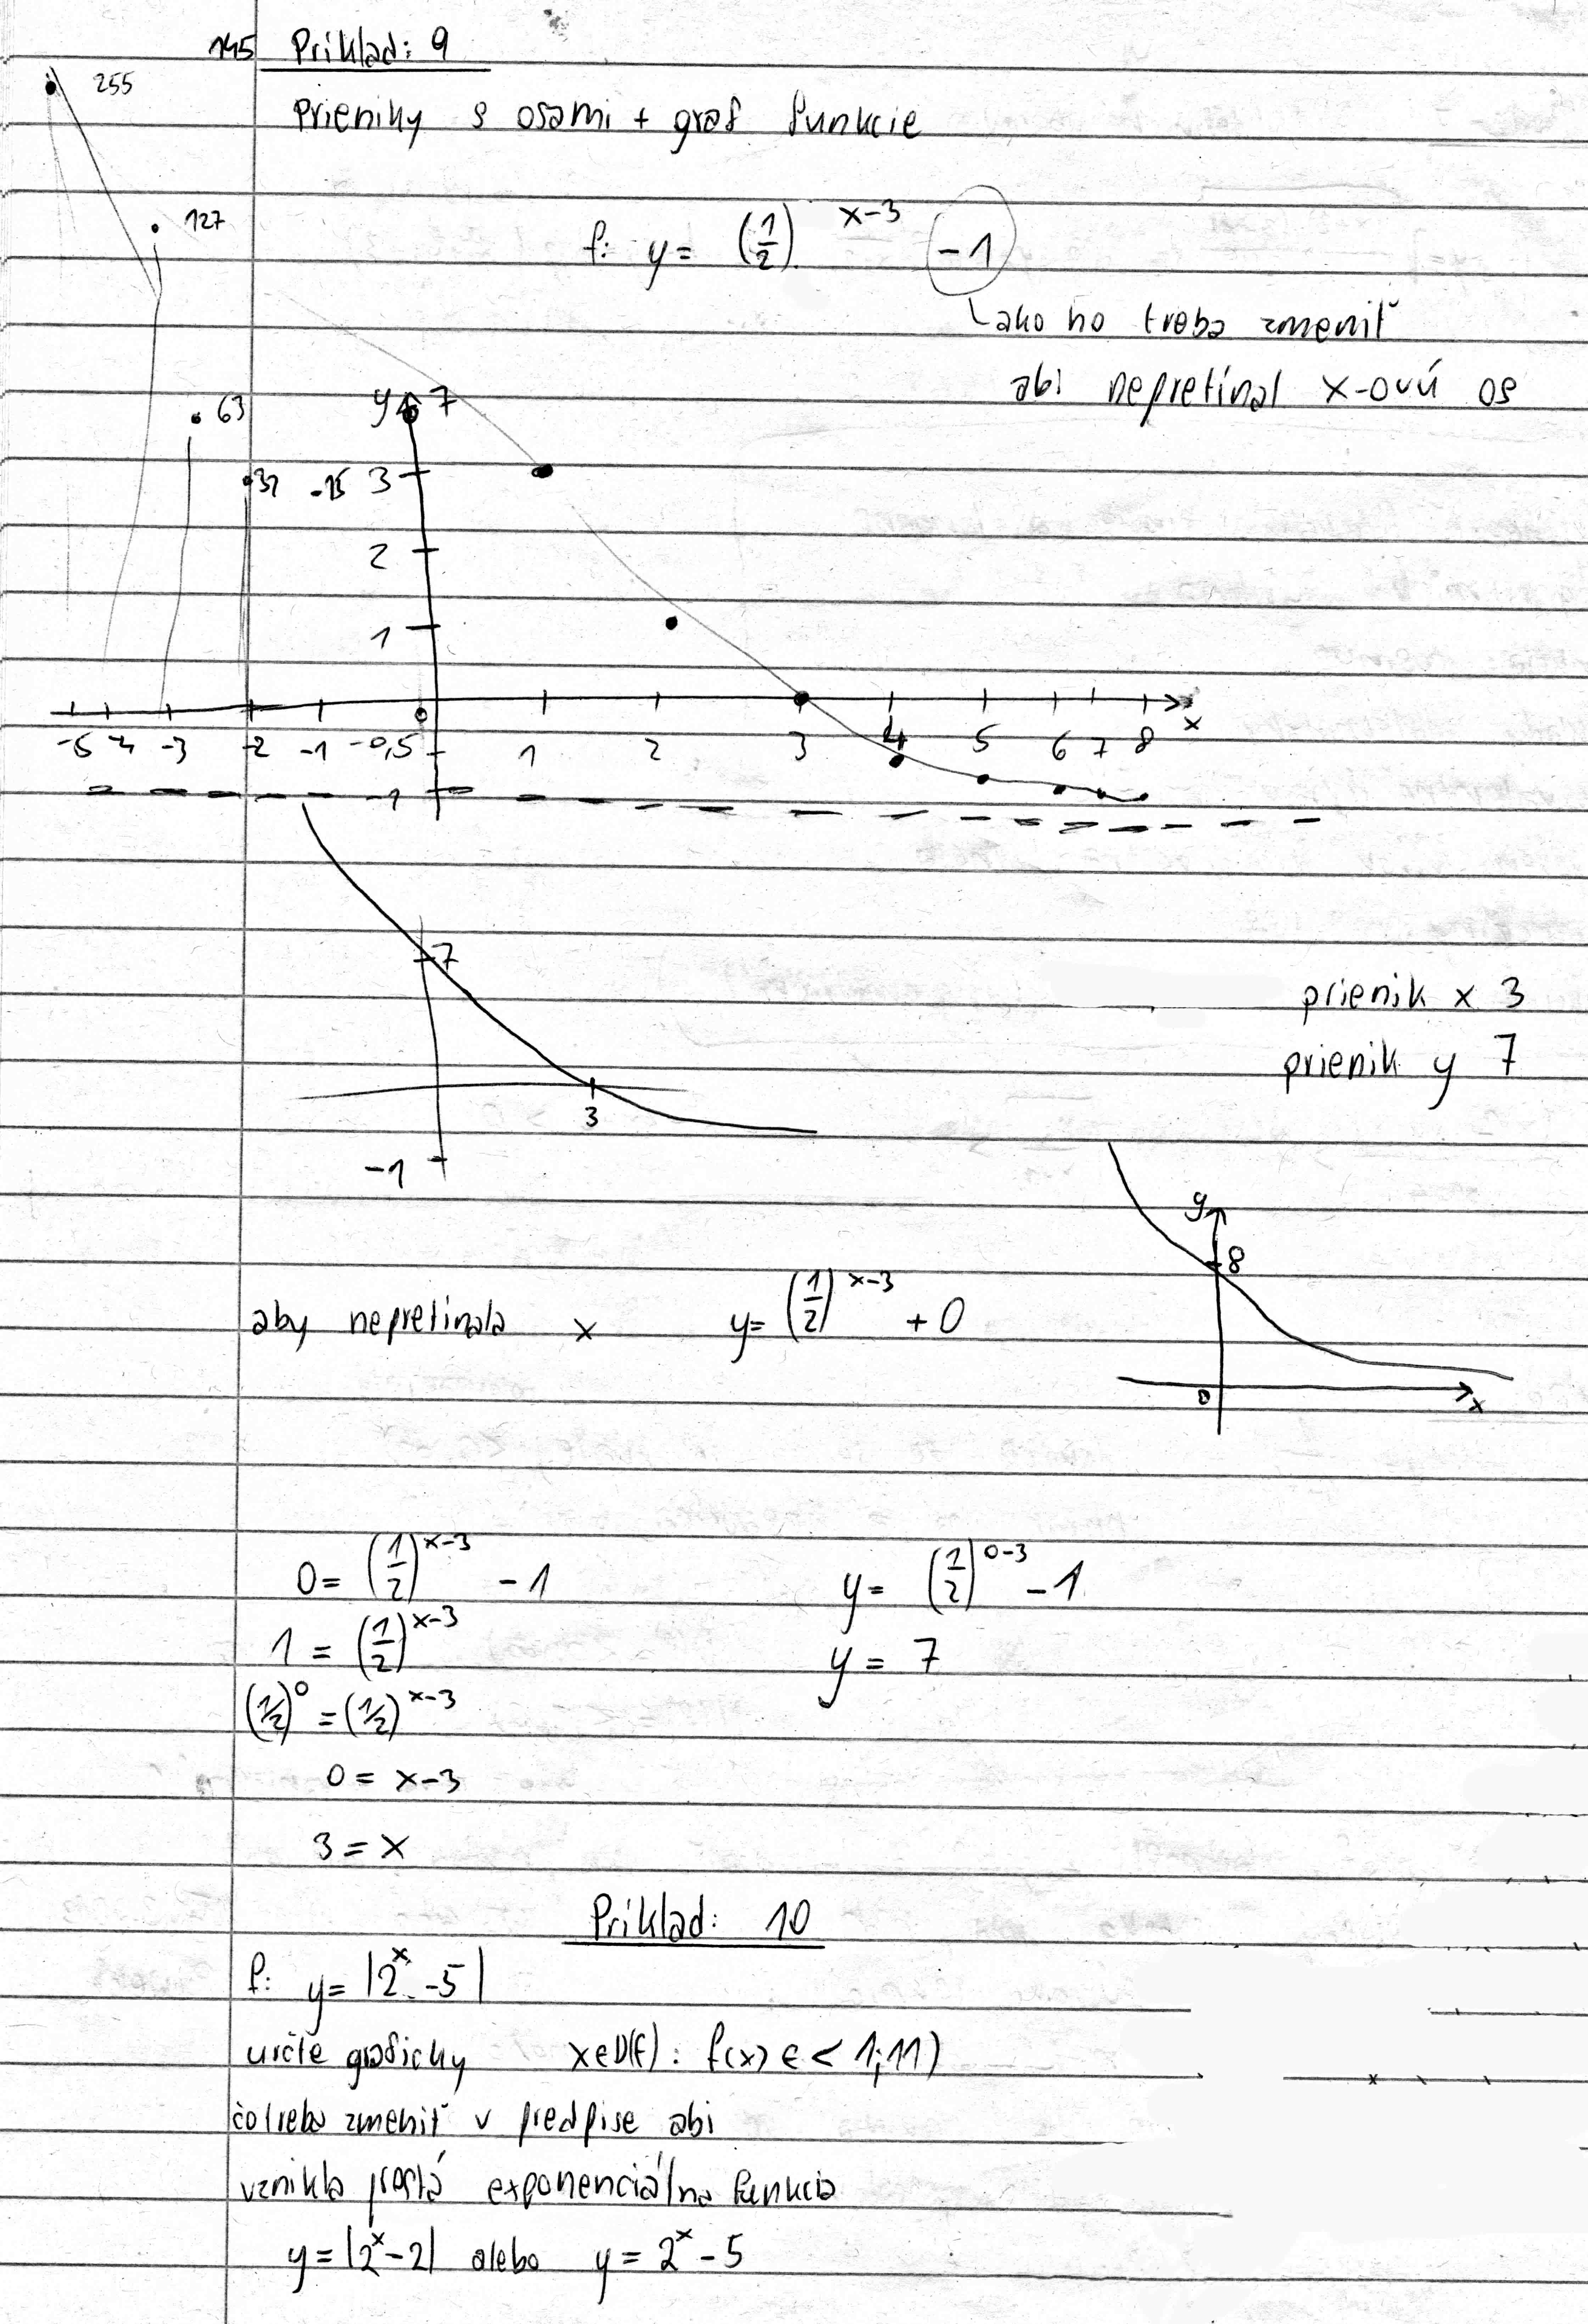 145 Príklad: 9
prieniky s osami + graf funkcie
f: y = (1/2)^(x-3) -1
ako ho treba zmeniť
abi nepretínal x-ovú os
255
127
63
31 15
y 7
3
2
1
0
-5 -4 -3 -2 -1 -0,5 1 2 3 4 5 6 7 8 x
-1
7
3
-1
prienik x 3
prienik y 7
y
8
0 x
aby nepretinala x y= (1/2)^(x-3) +0
0= (1/2)^(x-3) -1 y= (1/2)^(0-3) -1
1 = (1/2)^(x-3) y = 7
(1/2)^0 = (1/2)^(x-3)
0 = x-3
3 = x
Príklad: 10
f: y= |2^x -5|
určte graficky x∈D(f): f(x) ∈ < 1;11)
čo treba zmeniť v predpise abi
vznikla prostá exponenciálna funkcia
y=|2^x-2| alebo y = 2^x - 5